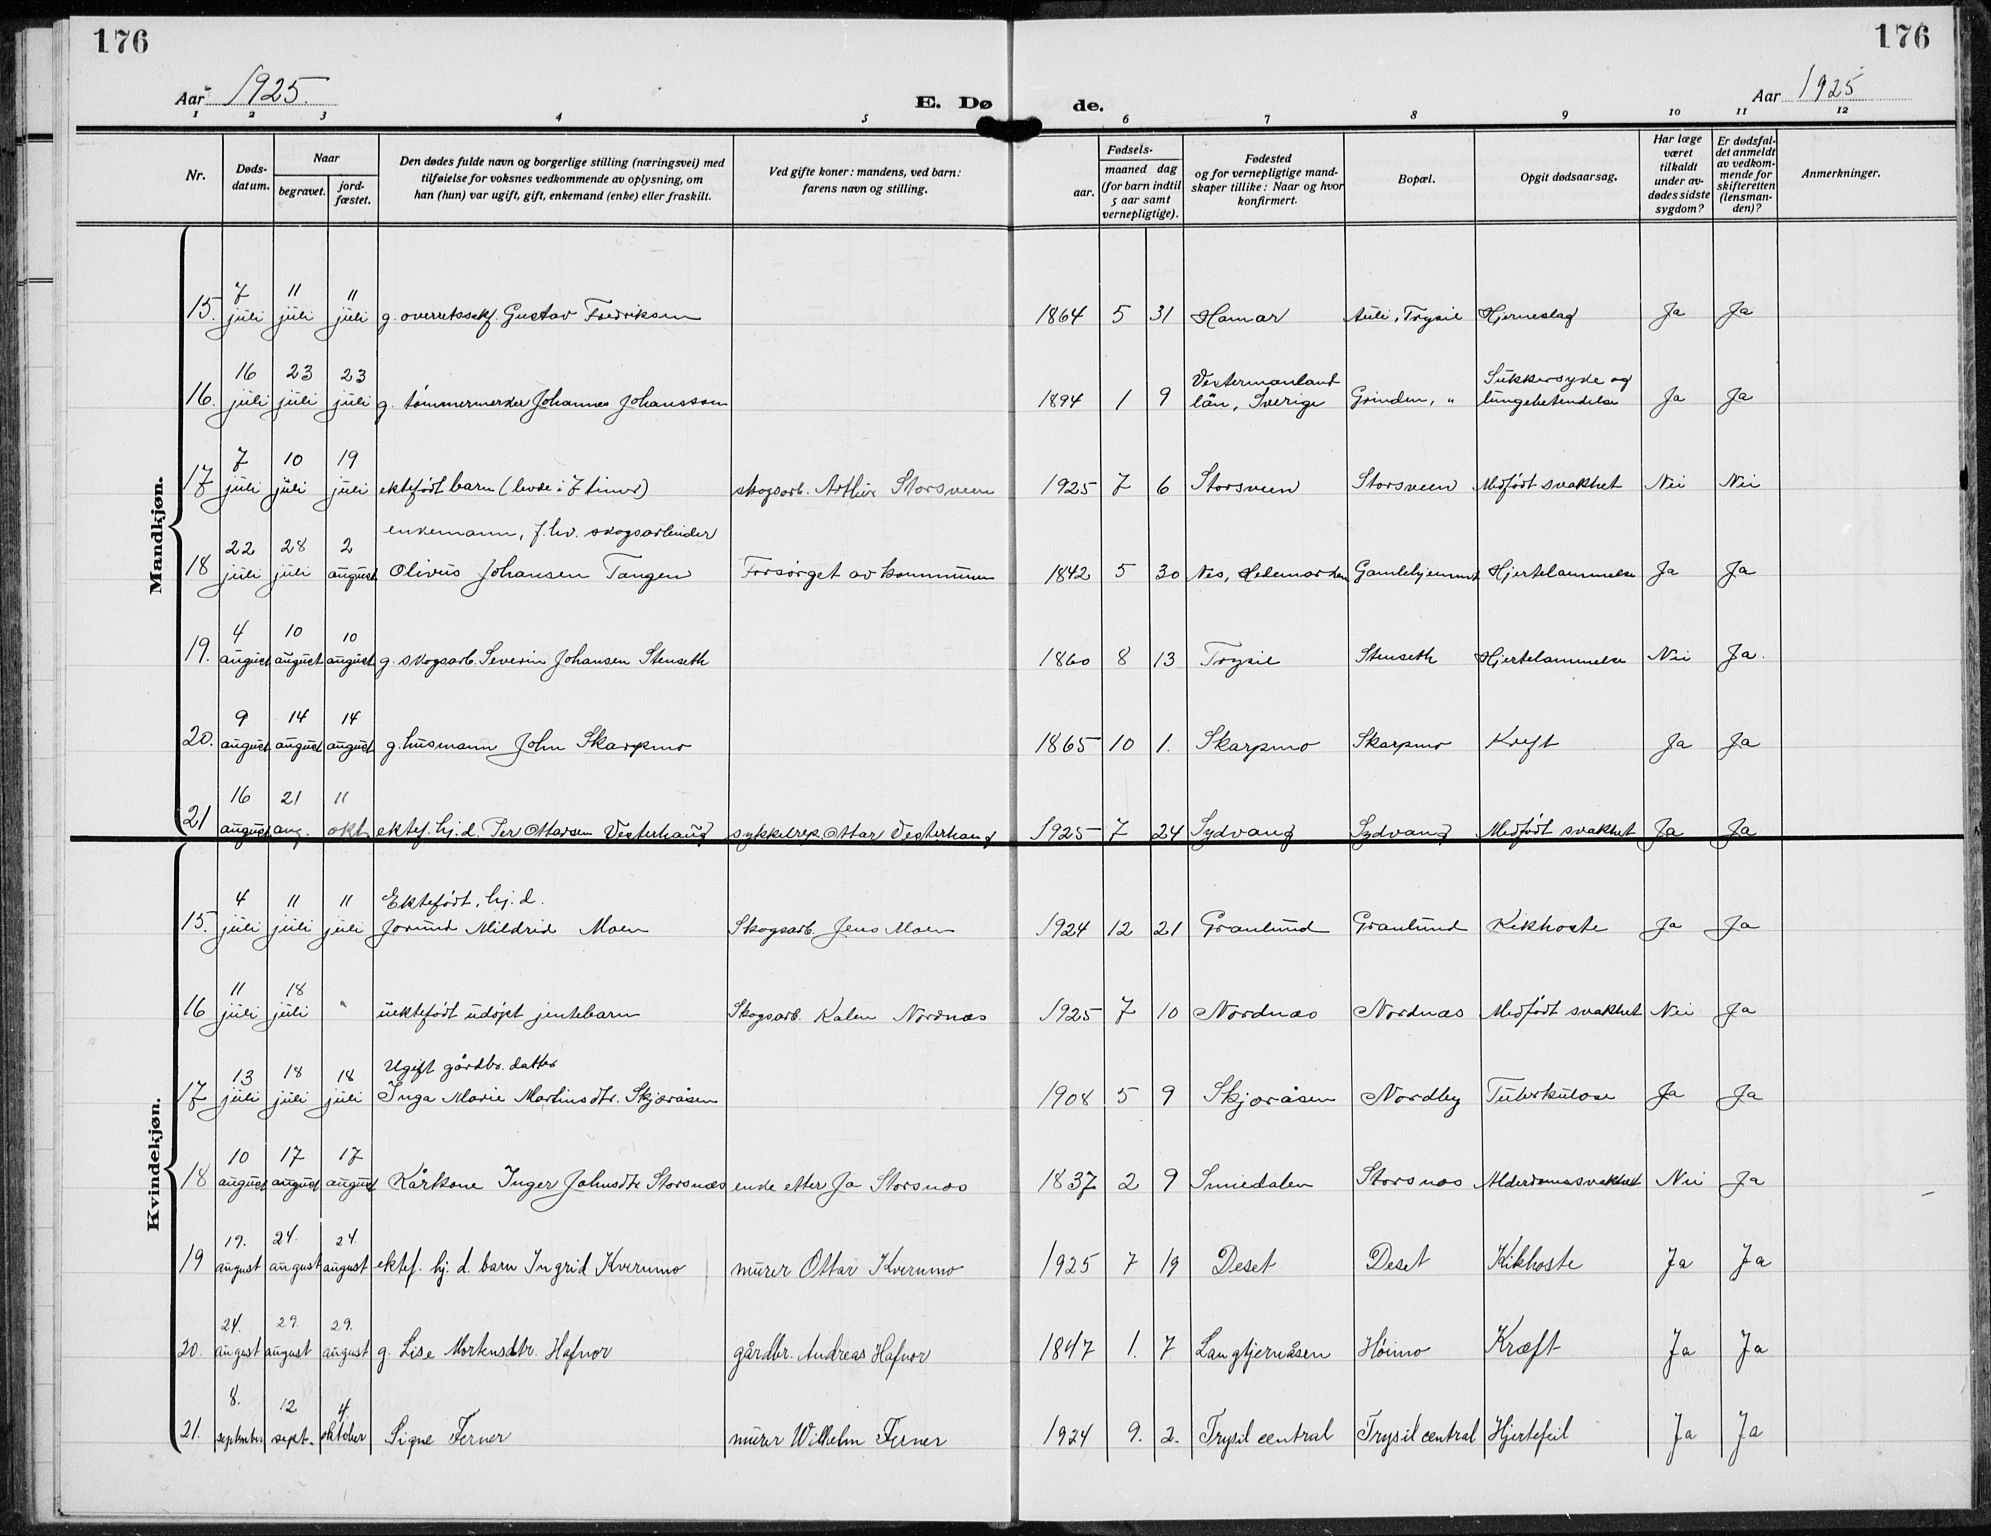 176 176
Aar 1925. E. Dø de. Aar 1925
1 2 3 4 5 6 7 8 9 10 11 12
Nr. Døds-datum. Naar begravet. jord-fæstet. Den dødes fulde navn og borgerlige stilling (næringsvei) med tilføielse for voksnes vedkommende av oplysning, om han (hun) var ugift, gift, enkemand (enke) eller fraskilt. Ved gifte koner: mandens, ved barn: farens navn og stilling. Fødsels- aar. maaned dag (for barn indtil 5 aar samt vernepligtige). Fødested og for vernepligtige mand-skaper tillike: Naar og hvor konfirmert. Bopæl. Opgit dødsaarsag. Har læge været tilkaldt under av-dødes sidste sygdom? Er dødsfal-det anmeldt av vedkom-mende for skifteretten (lensman-den)? Anmerkninger.
Mandkjøn.
7 11 11
15. juli juli juli g. overretssakf. Gustav Fredriksen 1864 5 31 Hamar Auli, Trysil Hjerneslag Ja Ja
16 23 23 Vestermanland Sukkersyke og
16. juli juli juli g. tømmermerker Johannes Johansson 1894 1 9 län, Sverige Grinden, " lungebetendelse Ja Ja
7 10 19
17 juli juli juli ektefødt barn (levde i 7 timer) skogsarb. Arthur Storsveen 1925 7 6 Storsveen Storsveen Medfødt svakhet Nei Nei
22 28 2 enkemann, f.hv. skogsarbeider
18 juli juli august Olivus Johansen Tangen Forsørget av kommunen 1842 5 30 Nes, Hedemarken Gamlehjemmet Hjertelammelse Ja Ja
4 10 10
19. august august august g. skogsarb. Severin Johansen Stenseth 1860 8 13 Trysil Stenseth Hjertelammelse Nei Ja.
9 14 14
20. august august august g. husmann John Skarpmo 1865 10 1. Skarpmo Skarpmo Kreft Ja Ja
16 21 11
21 august aug. okt. ektef. hj.d. Per Ottarsen Vesterhaug sykkelrep. Ottar Vesterhaug 1925 7 24 Sydvang Sydvang Medfødt svakhet Ja Ja
Kvindekjøn.
4 11 11 Ektefødt, hj.d.
15. juli juli juli Jorund Mildrid Moen Skogsarb. Jens Moen 1924 12 21 Granlund Granlund Kikhoste Ja Ja
11 18
16 juli juli " uektefødt udøpt jentebarn Skogsarb. Kalen Nordnæs 1925 7 10 Nordnæs Nordnæs Medfødt svakhet Nei Ja
13 18 18 Ugift gårdbr. datter
17 juli juli juli Inga Marie Martinsdtr. Skjæråsen 1908 5 9 Skjæråsen Nordby Tuberkulose Ja Ja
10 17 17
18 august august august Kårkone Inger Johnsdtr Storsnæs enke etter Jo Storsnæs 1837 2 9 Smiedalen Storsnæs Alderdomssvakhet Nei Ja
19. 24. 24.
19 august august august ektef. hj. d. barn Ingrid Kvernmo murer Ottar Kvernmo 1925 7 19 Deset Deset Kikhoste Ja Ja
24. 29. 29.
20. august august august g. Lise Mortensdtr. Hafnor gårdbr. Andreas Hafnor 1847 1. 7 Langtjernåsen Høimo Kræft Ja Ja
8. 12 4.
21. september sept. oktober Signe Ferner murer Wilhelm Ferner 1924 9. 2. Trysil central Trysil central Hjertefeil Ja Ja